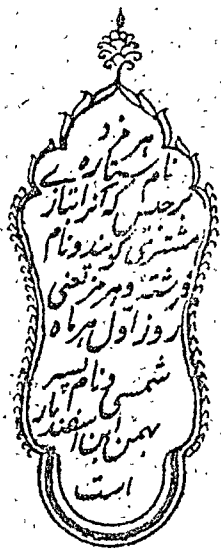 هرمزد
نام ستاره ے
برجیس که آنرا بتاز
مشتری گویند و نام
فرشته و هرمز یعنی
روز اول هر ماه
شمسی و نام پسر
بهمن ابن اسفندیار
است